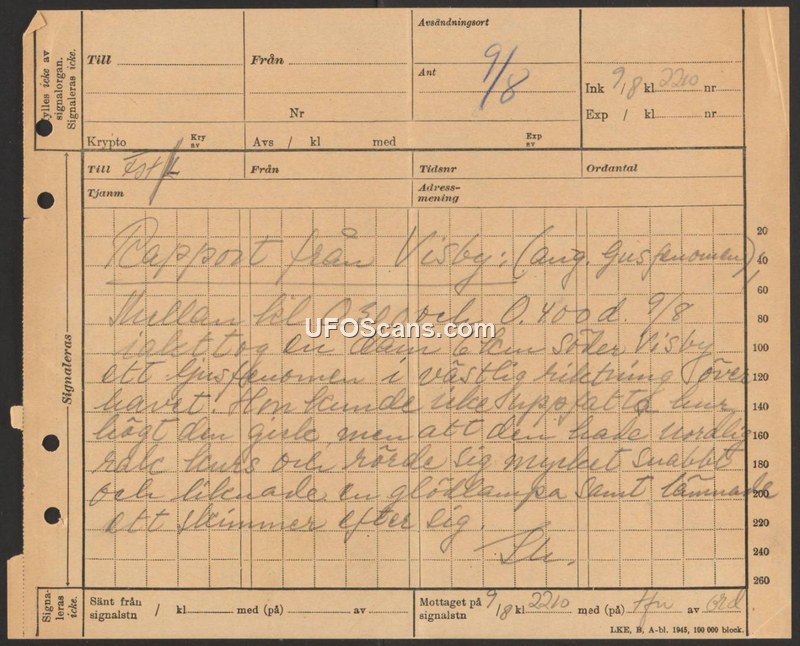 Fylles icke av
signalorgan.
Signaleras icke.
Till
Från
Nr
Avsändningsort
Ant
9/8
Ink 9/8 kl 2210 nr
Exp / kl nr
Krypto
Kry
av
Avs / kl med
Exp
av
Till
Från
Tidsnr
Ordantal
Tjanm
Adress-
mening
Signaleras
Rapport från Visby: (ang. ljusfenomen)
Mellan kl och 0.400 d. 9/8
iakttog en dam 6 km söder Visby
ett ljusfenomen i västlig riktning över
havet. Hon kunde icke uppfatta hur
högt den gick, men att den hade nordlig
rak kurs och rörde sig mycket snabbt
och liknade en glödlampa samt lämnade
ett skimmer efter sig.
20
40
60
80
100
120
140
160
180
200
220
240
260
UFOScans.com
Signa-
leras
icke.
Sänt från
signalstn
/ kl med (på) av
Mottaget på
signalstn
9/8 kl 2210 med (på) tfn av
LKE, B, A-bl. 1945, 100 000 block.